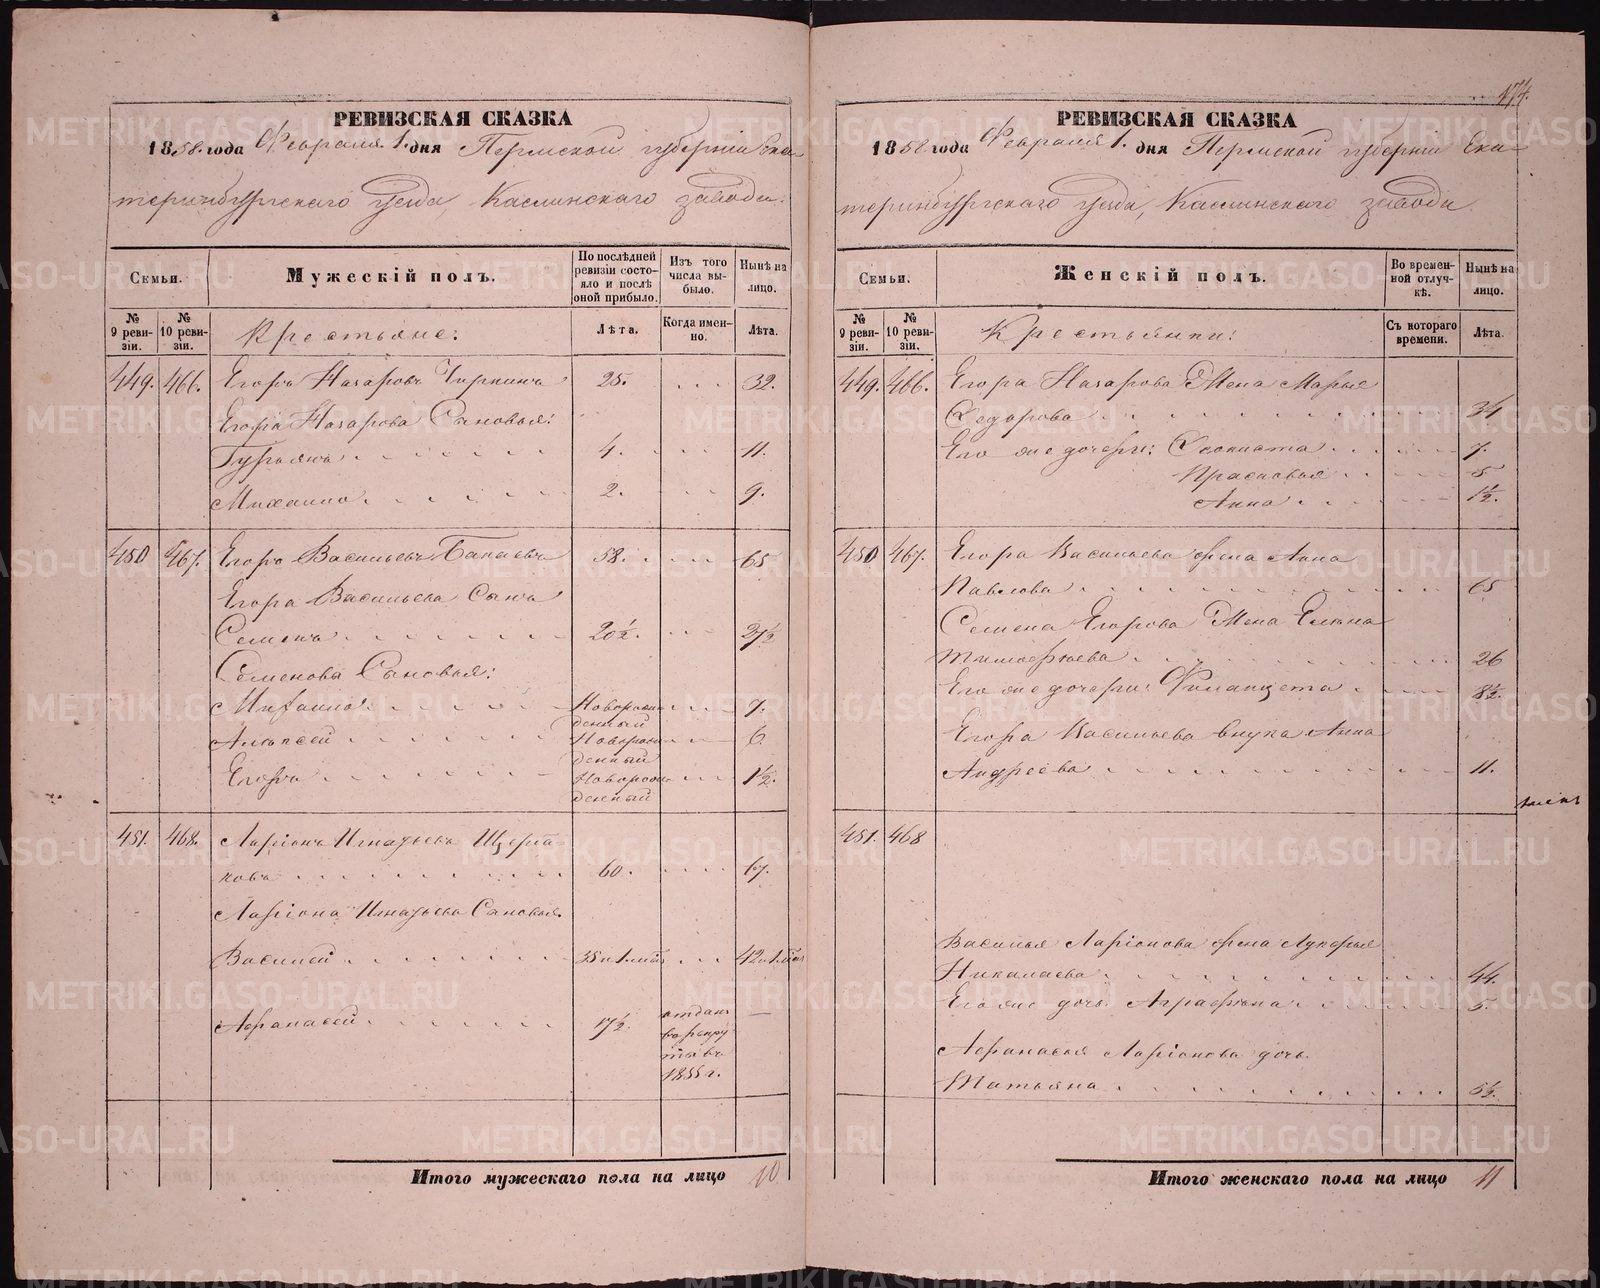 РЕВИЗСКАЯ СКАЗКА
1858 года Февраля 1. дня Пермской губерніи Ека-
теринбургскаго уезда, Каслинскаго завода.
Семьи.
Мужескій полъ.
По послѣдней ревизіи состо-
яло и послѣ оной прибыло.
Изъ того числа вы-
было.
Нынѣ на лицо.
№ 9 реви-
зіи.
№ 10 реви-
зіи.
Крестьяне:
Лѣта.
Когда имен-
но.
Лѣта.
449. 466. Егоръ Назаровъ Чиркинъ 25. 32.
Егора Назарова Сыновья:
Гурьянъ 4. 11.
Михаило 2. 9.
450 467. Егоръ Васильевъ 58. 65
Егора Васильева Сынъ
Семенъ 20½. 27½
Семенова Сыновья:
Михаило Новорож-
денный 7.
Алексей Новорож-
денный 6
Егоръ Новорож-
денный 1½.
451. 468. Ларіонъ Игнатьевъ Щерба-
ковъ 60. 67.
Ларіона Игнатьева Сыновья.
Василей 35 и 1 мѣс 42 и 1 мѣс
Афанасей 17½ отданъ
въ рекру
ты въ
1855 г. —
Итого мужескаго пола на лицо 10
174.
РЕВИЗСКАЯ СКАЗКА
1858 года Февраля 1. дня Пермской губерніи Ека-
теринбургскаго уезда, Каслинскаго завода
Семьи.
Женскій полъ.
Во времен-
ной отлуч-
кѣ.
Нынѣ на лицо.
№ 9 реви-
зіи.
№ 10 реви-
зіи.
Крестьянки:
Съ котораго времени.
Лѣта.
449. 466. Егора Назарова Жена Марья
Федорова 34
Его же дочери: Феоктиста 7.
Прасковья 5
Анна 1½.
450 467. Егора Васильева жена Анна
Павлова 65
Семена Егорова Жена Елена
Тимофеева 26
Его же дочери: 8½.
Егора Васильева внука Анна
Андреева 11.
451. 468
Василья Ларіонова жена Лукерья
Николаева 44.
Его же дочь Аграфена 5.
Афанасья Ларіонова дочь
Татьяна 5½.
Итого женскаго пола на лицо 11
METRIKI.GASO-URAL.RU